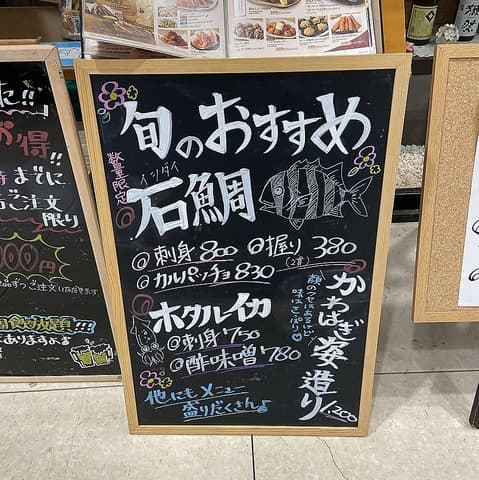 旬のおすすめ
数量限定
イシダイ
石鯛
◎刺身800
◎握り380
(2貫)
◎カルパッチョ830
ホタルイカ
◎刺身750
◎酢味噌780
かわはぎ姿造り
1,200
他にもメニュー
盛りだくさん♪
た!!
お得!!
までに
ご注文
限り
00円
飲放題!!!
あります